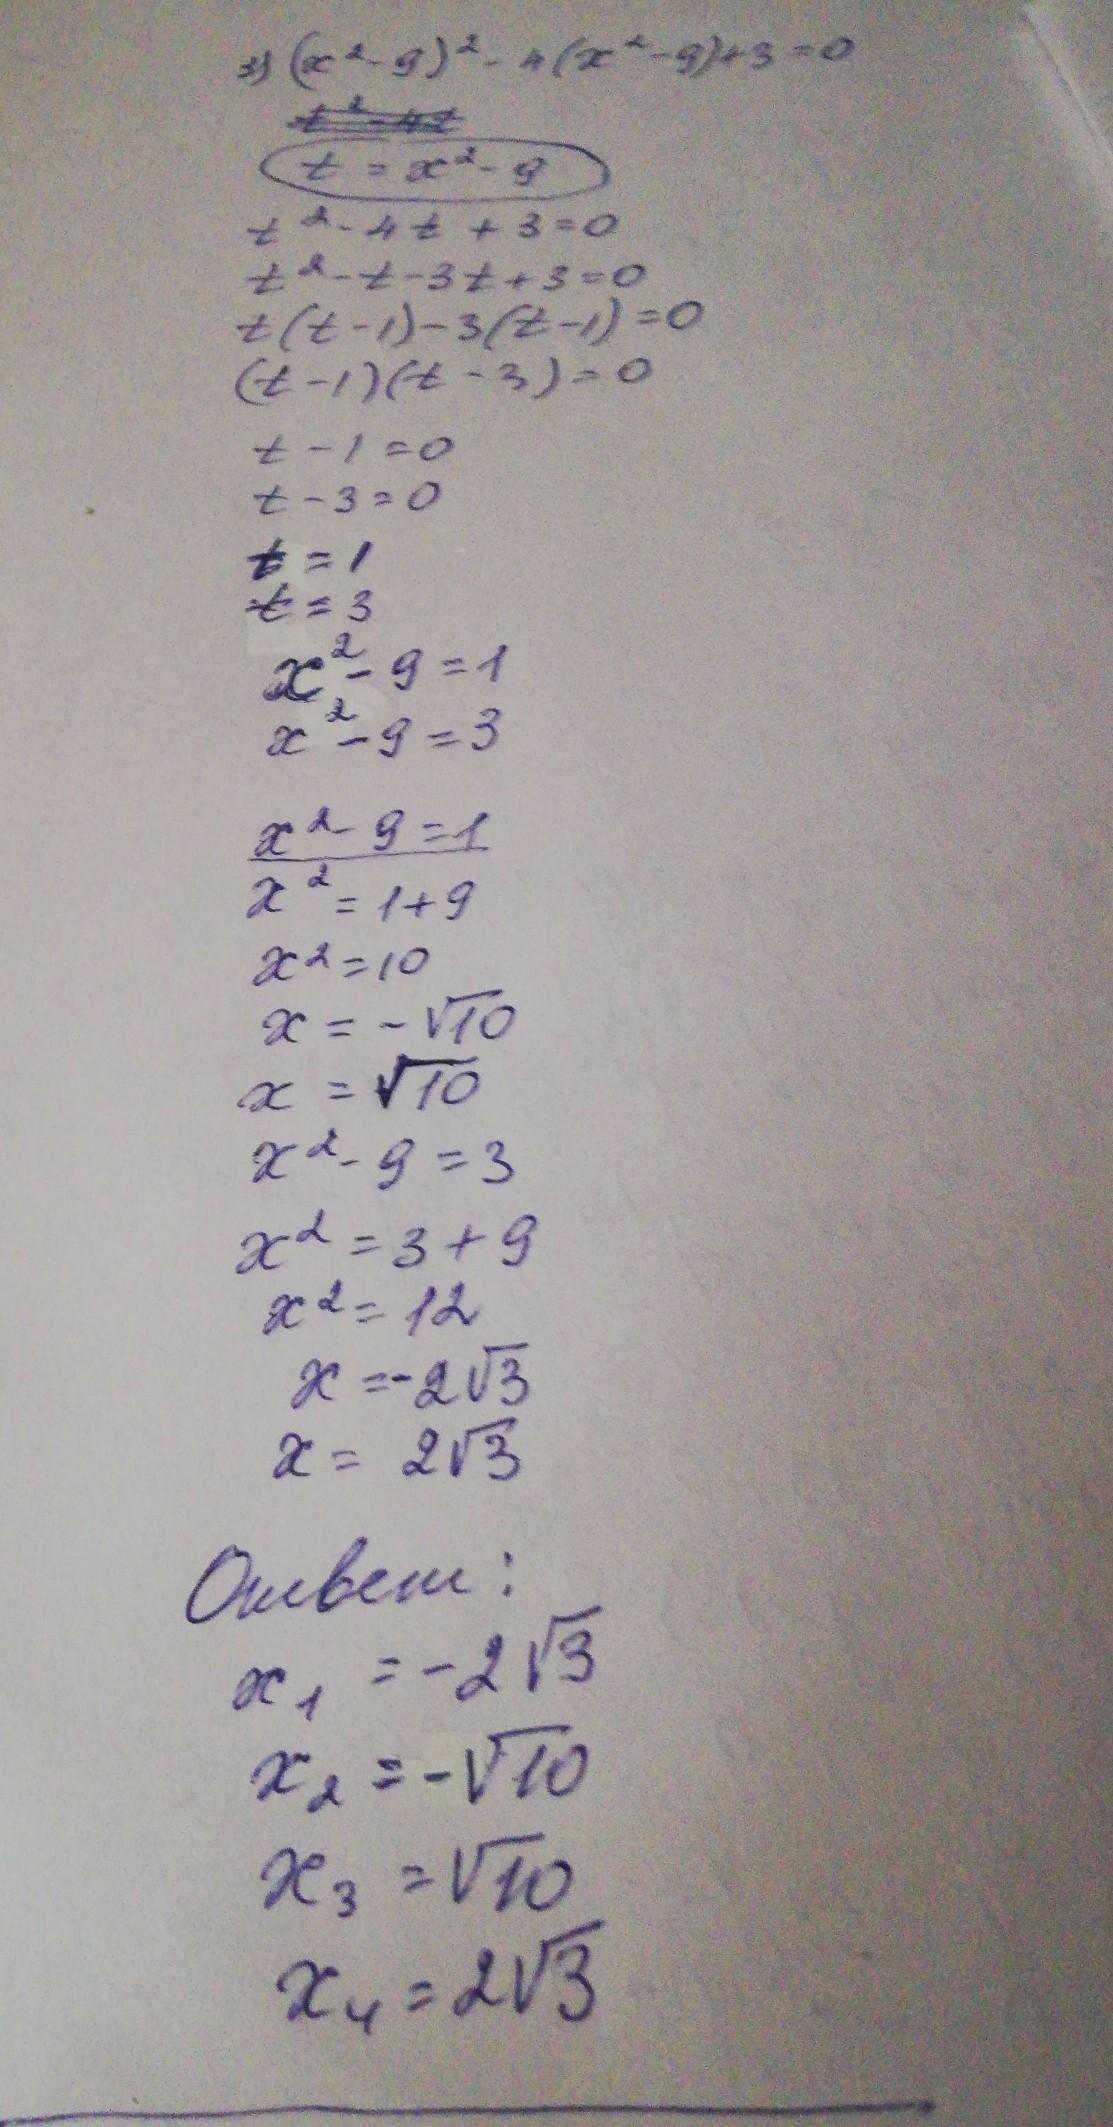 3) (x² - 9)² - 4(x² - 9) + 3 = 0
t = x² - 9
t² - 4t + 3 = 0
t² - t - 3t + 3 = 0
t(t - 1) - 3(t - 1) = 0
(t - 1)(t - 3) = 0
t - 1 = 0
t - 3 = 0
t = 1
t = 3
x² - 9 = 1
x² - 9 = 3
x² - 9 = 1
x² = 1 + 9
x² = 10
x = -√10
x = √10
x² - 9 = 3
x² = 3 + 9
x² = 12
x = -2√3
x = 2√3
Ответ:
x₁ = -2√3
x₂ = -√10
x₃ = √10
x₄ = 2√3